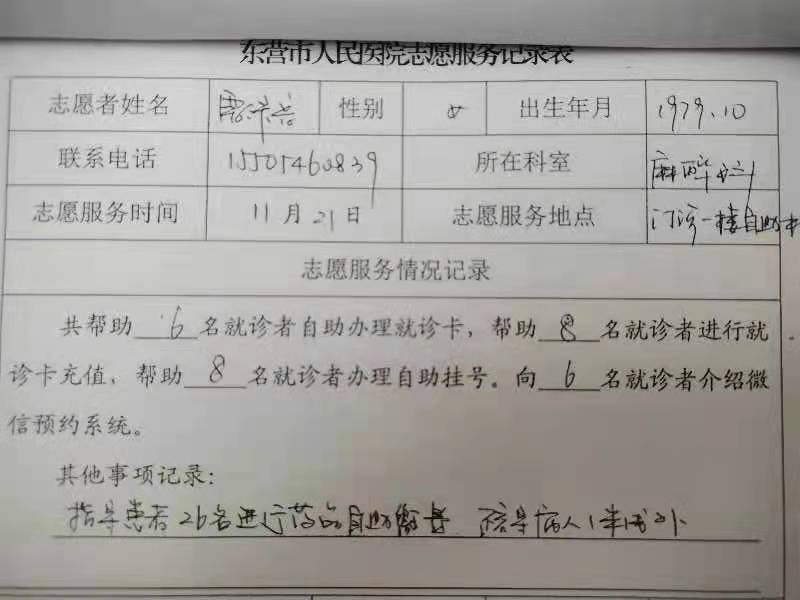 东营市人民医院志愿服务记录表
志愿者姓名 性别 女 出生年月 1979.10
联系电话 15505460839 所在科室 麻醉
志愿服务时间 11月21日 志愿服务地点 门诊一楼自助
志愿服务情况记录
共帮助 6 名就诊者自助办理就诊卡，帮助 8 名就诊者进行就
诊卡充值，帮助 8 名就诊者办理自助挂号。向 6 名就诊者介绍微
信预约系统。
其他事项记录：
指导患者26名进行药品自助 病人1